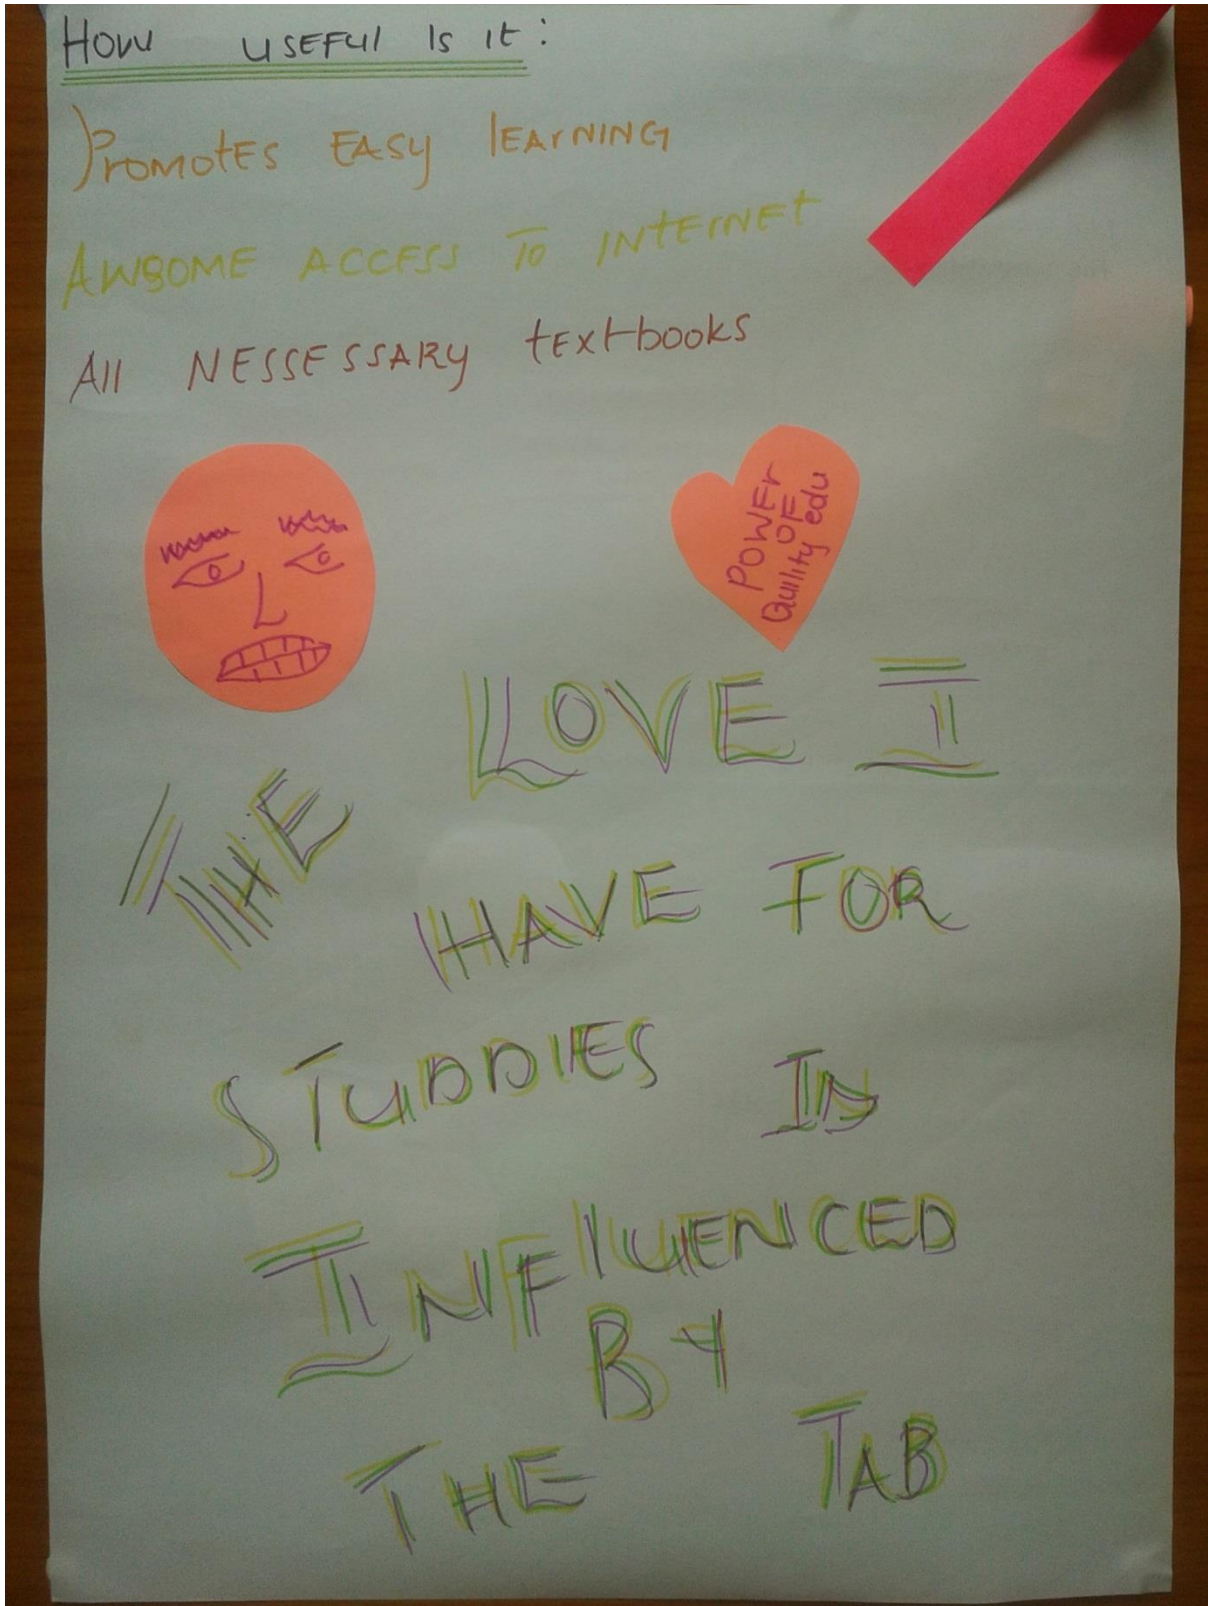 How USEFUl Is it:
Promotes EASy lEArNING
AWSOME ACCESS To INtErNEt
All NESSESSARy tExtbooks
POWEr
OF
Quility edu
THE LOVE I
HAVE FOR
STUDDIES IS
INFlUENCED
BY
THE TAB